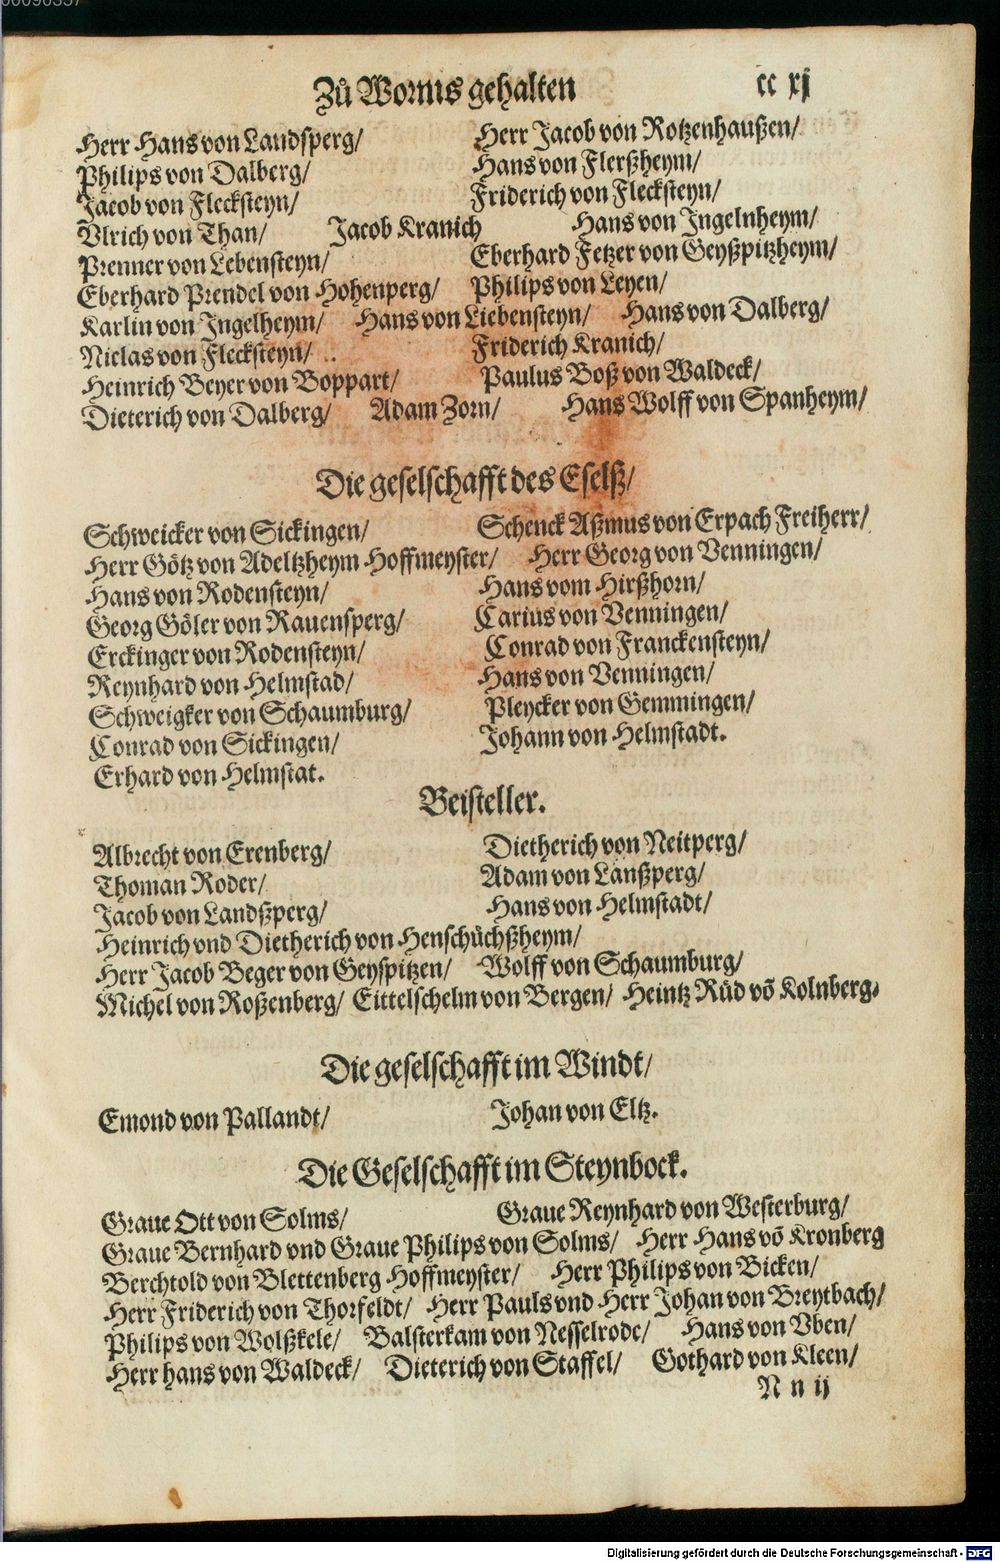 Zů Worms gehalten cc xj
Herr Hans von Landsperg/ Herr Jacob von Rotzenhaußen/
Philips von Dalberg/ Hans von Flerßheym/
Jacob von Flecksteyn/ Friderich von Flecksteyn/
Vlrich von Than/ Jacob Kranich Hans von Ingelnheym/
Prenner von Lebensteyn/ Eberhard Fetzer von Geyßpitzheym/
Eberhard Prendel von Hohenperg/ Philips von Leyen/
Karlin von Ingelheym/ Hans von Liebensteyn/ Hans von Dalberg/
Niclas von Flecksteyn/ Friderich Kranich/
Heinrich Beyer von Boppart/ Paulus Boß von Waldeck/
Dieterich von Dalberg/ Adam Zorn/ Hans Wolff von Spanheym/
Die geselschafft des Eselß/
Schweicker von Sickingen/ Schenck Aßmus von Erpach Freiherr/
Herr Götz von Adeltzheym Hoffmeyster/ Herr Georg von Venningen/
Hans von Rodensteyn/ Hans vom Hirßhorn/
Georg Göler von Rauensperg/ Carius von Venningen/
Erckinger von Rodensteyn/ Conrad von Franckensteyn/
Reynhard von Helmstad/ Hans von Venningen/
Schweigker von Schaumburg/ Pleycker von Gemmingen/
Conrad von Sickingen/ Johann von Helmstadt.
Erhard von Helmstat.
Beisteller.
Albrecht von Erenberg/ Dietherich von Neitperg/
Thoman Roder/ Adam von Lanßperg/
Jacob von Landßperg/ Hans von Helmstadt/
Heinrich vnd Dietherich von Henschüchßheym/
Herr Jacob Beger von Geyspitzen/ Wolff von Schaumburg/
Michel von Roßenberg/ Eittelschelm von Bergen/ Heintz Rüd võ Kolnberg.
Die geselschafft im Windt/
Emond von Pallandt/ Johan von Eltz.
Die Geselschafft im Steynbock.
Graue Ott von Solms/ Graue Reynhard von Westerburg/
Graue Bernhard vnd Graue Philips von Solms/ Herr Hans võ Kronberg
Berchtold von Blettenberg Hoffmeyster/ Herr Philips von Bicken/
Herr Friderich von Thorfeldt/ Herr Pauls vnd Herr Johan von Breytbach/
Philips von Wolßkele/ Balsterkam von Nesselrode/ Hans von Vben/
Herr hans von Waldeck/ Dieterich von Staffel/ Gothard von Kleen/
N n ij
Digitalisierung gefördert durch die Deutsche Forschungsgemeinschaft - DFG